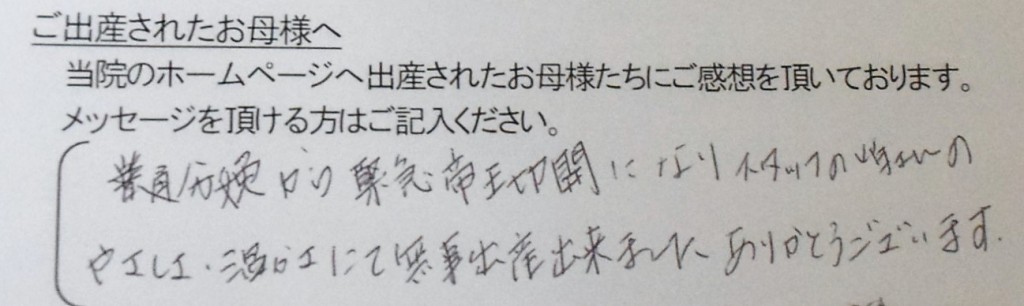 ご出産されたお母様へ
当院のホームページへ出産されたお母様たちにご感想を頂いております。
メッセージを頂ける方はご記入ください。
普通分娩から緊急帝王切開になりスタッフの皆さんの
やさしさ・温かさにて無事出産出来ました ありがとうございます.